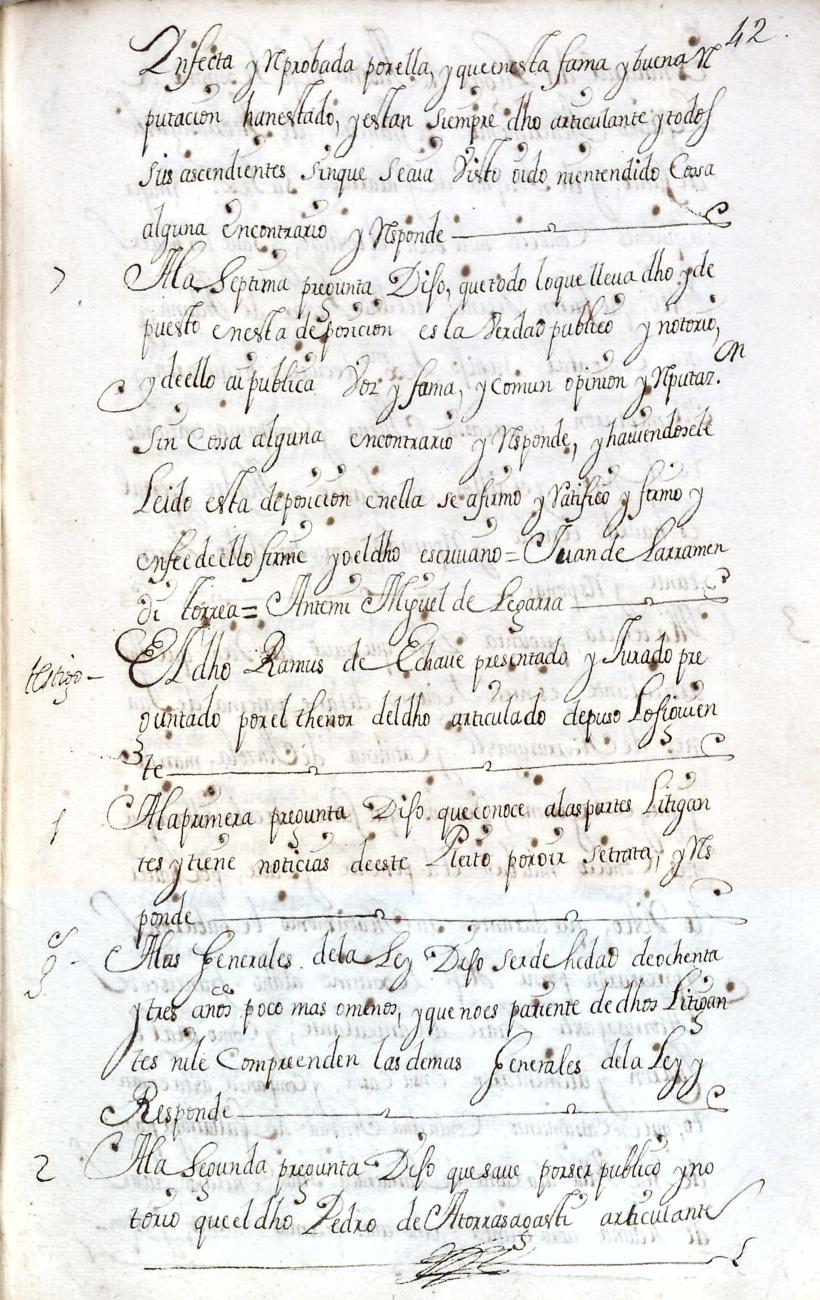 42.
Ynfecta y Rprobada por ella, y que en esta fama y buena R
putacion han estado, y estan siempre dho articulante y todos
sus ascendientes sin que se aia visto oido ni entendido Cossa
alguna encontrario y Rsponde
7 A la Septima pregunta Dijo, que todo lo que lleua dho y de
puesto en esta deposicion es la Verdad publico y notorio,
y de ello ai publica Voz y fama, y comun opinion y Rputaz.on
sin Cossa alguna encontrario y Rsponde, y hauiendosele
Leido esta deposicion en ella se afirmo y Ratifico y firmo y
en fee de ello firme yo el dho escriuano = Juan de Larramen
di torrea = Antemi Miguel de Legarra
testigo El dho Ramus de Echaue presentado y Jurado pre
guntado por el thenor del dho articulado depuso Lo siguien
te
1 A la primera pregunta Dijo que conoce a las partes Litigan
tes y tiene noticias de este Pleito por oir se trata, y Rs
ponde
A las Generales de la Ley Dijo ser de hedad de ochenta
y tres años poco mas o menos, y que no es pariente de dhos Litigan
tes ni le Compreenden las demas Generales de la Ley y
Responde
2 A la Segunda pregunta Dijo que saue por ser publico y no
torio que el dho Pedro de Atorrasagasti articulante